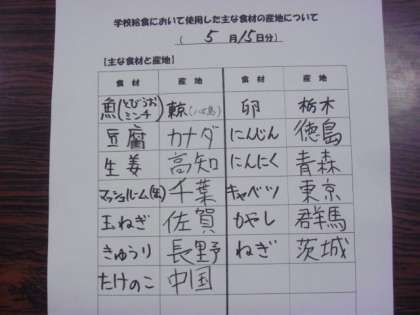 学校給食において使用した主な食材の産地について
( 5 月 15 日分)
【主な食材と産地】
食材 産地 食材 産地
魚(とびうおミンチ) 東京(八丈島) 卵 栃木
豆腐 カナダ にんじん 徳島
生姜 高知 にんにく 青森
マッシュルーム(生) 千葉 キャベツ 東京
玉ねぎ 佐賀 もやし 群馬
きゅうり 長野 ねぎ 茨城
たけのこ 中国